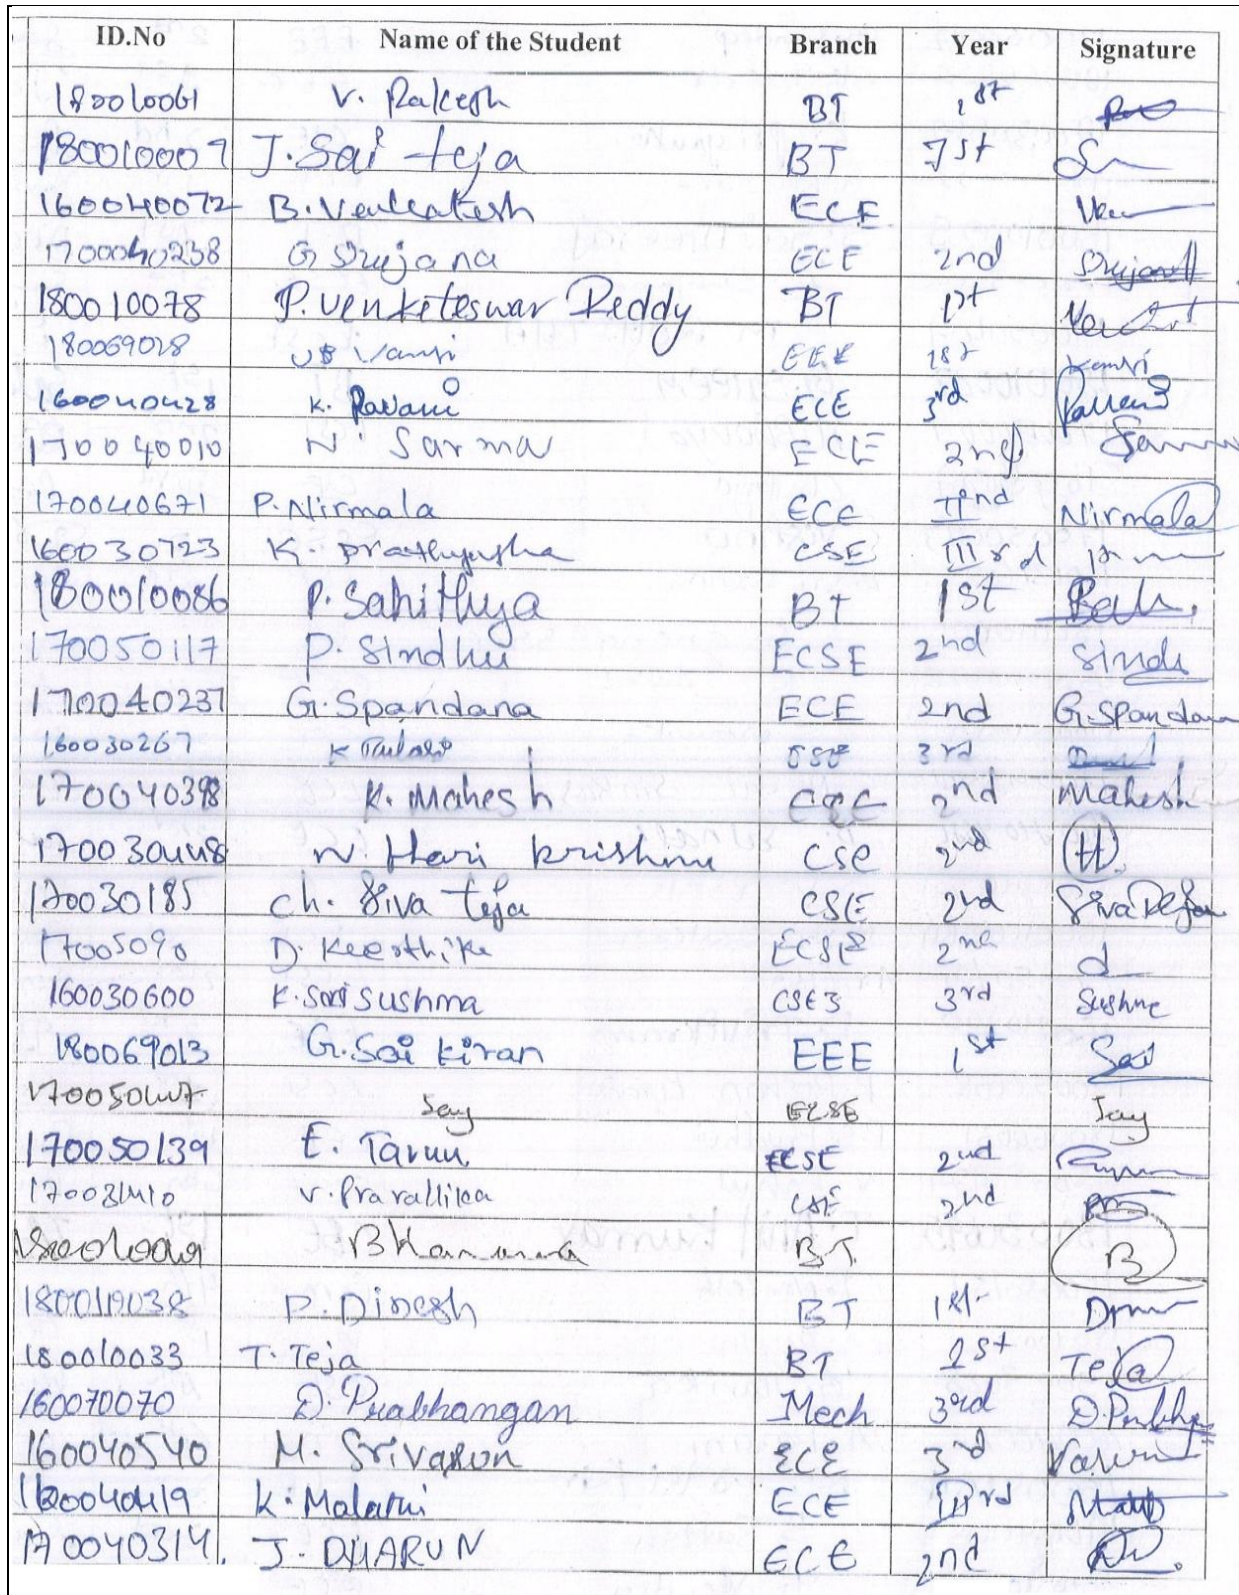 ID.No Name of the Student Branch Year Signature
180010061 V. Rakesh BT 1st
180010009 J. Sai teja BT 1st
160040072 B. Venkatesh ECE
170040238 G Srujana ECE 2nd Srujana
180010078 P. Venkateswar Reddy BT 1st
180069028 Vamsi EEE 1st Vamsi
160040428 K. Pavani ECE 3rd Pavani
170040010 N. Sarma ECE 2nd
170040671 P. Nirmala ECE IInd Nirmala
160030723 K. prathyusha CSE IIIrd
180010086 P. Sahithya BT 1st
170050117 P. Sindhu ECSE 2nd Sindu
170040237 G. Spandana ECE 2nd G. Spandana
160030267 K Tulasi CSE 3rd
170040398 K. Mahesh ECE 2nd Mahesh
170030448 N. Hari krishna CSE 2nd H
170030185 Ch. Siva teja CSE 2nd Siva Teja
17005090 D. Keerthika ECSE 2nd d
160030600 K. Sai Sushma CSE3 3rd Sushma
180069013 G. Sai kiran EEE 1st Sai
Jay ECSE Jay
170050139 E. Tarun ECSE 2nd
V. Pravallika CSE 2nd
BT B
180010038 P. Dinesh BT 1st
180010033 T. Teja BT 1st Teja
160070070 D. Prabhangan Mech 3rd
160040540 M. Srivarun ECE 3rd Varun
160040419 K. Malathi ECE IIIrd
170040314. J. DHARUN ECE 2nd